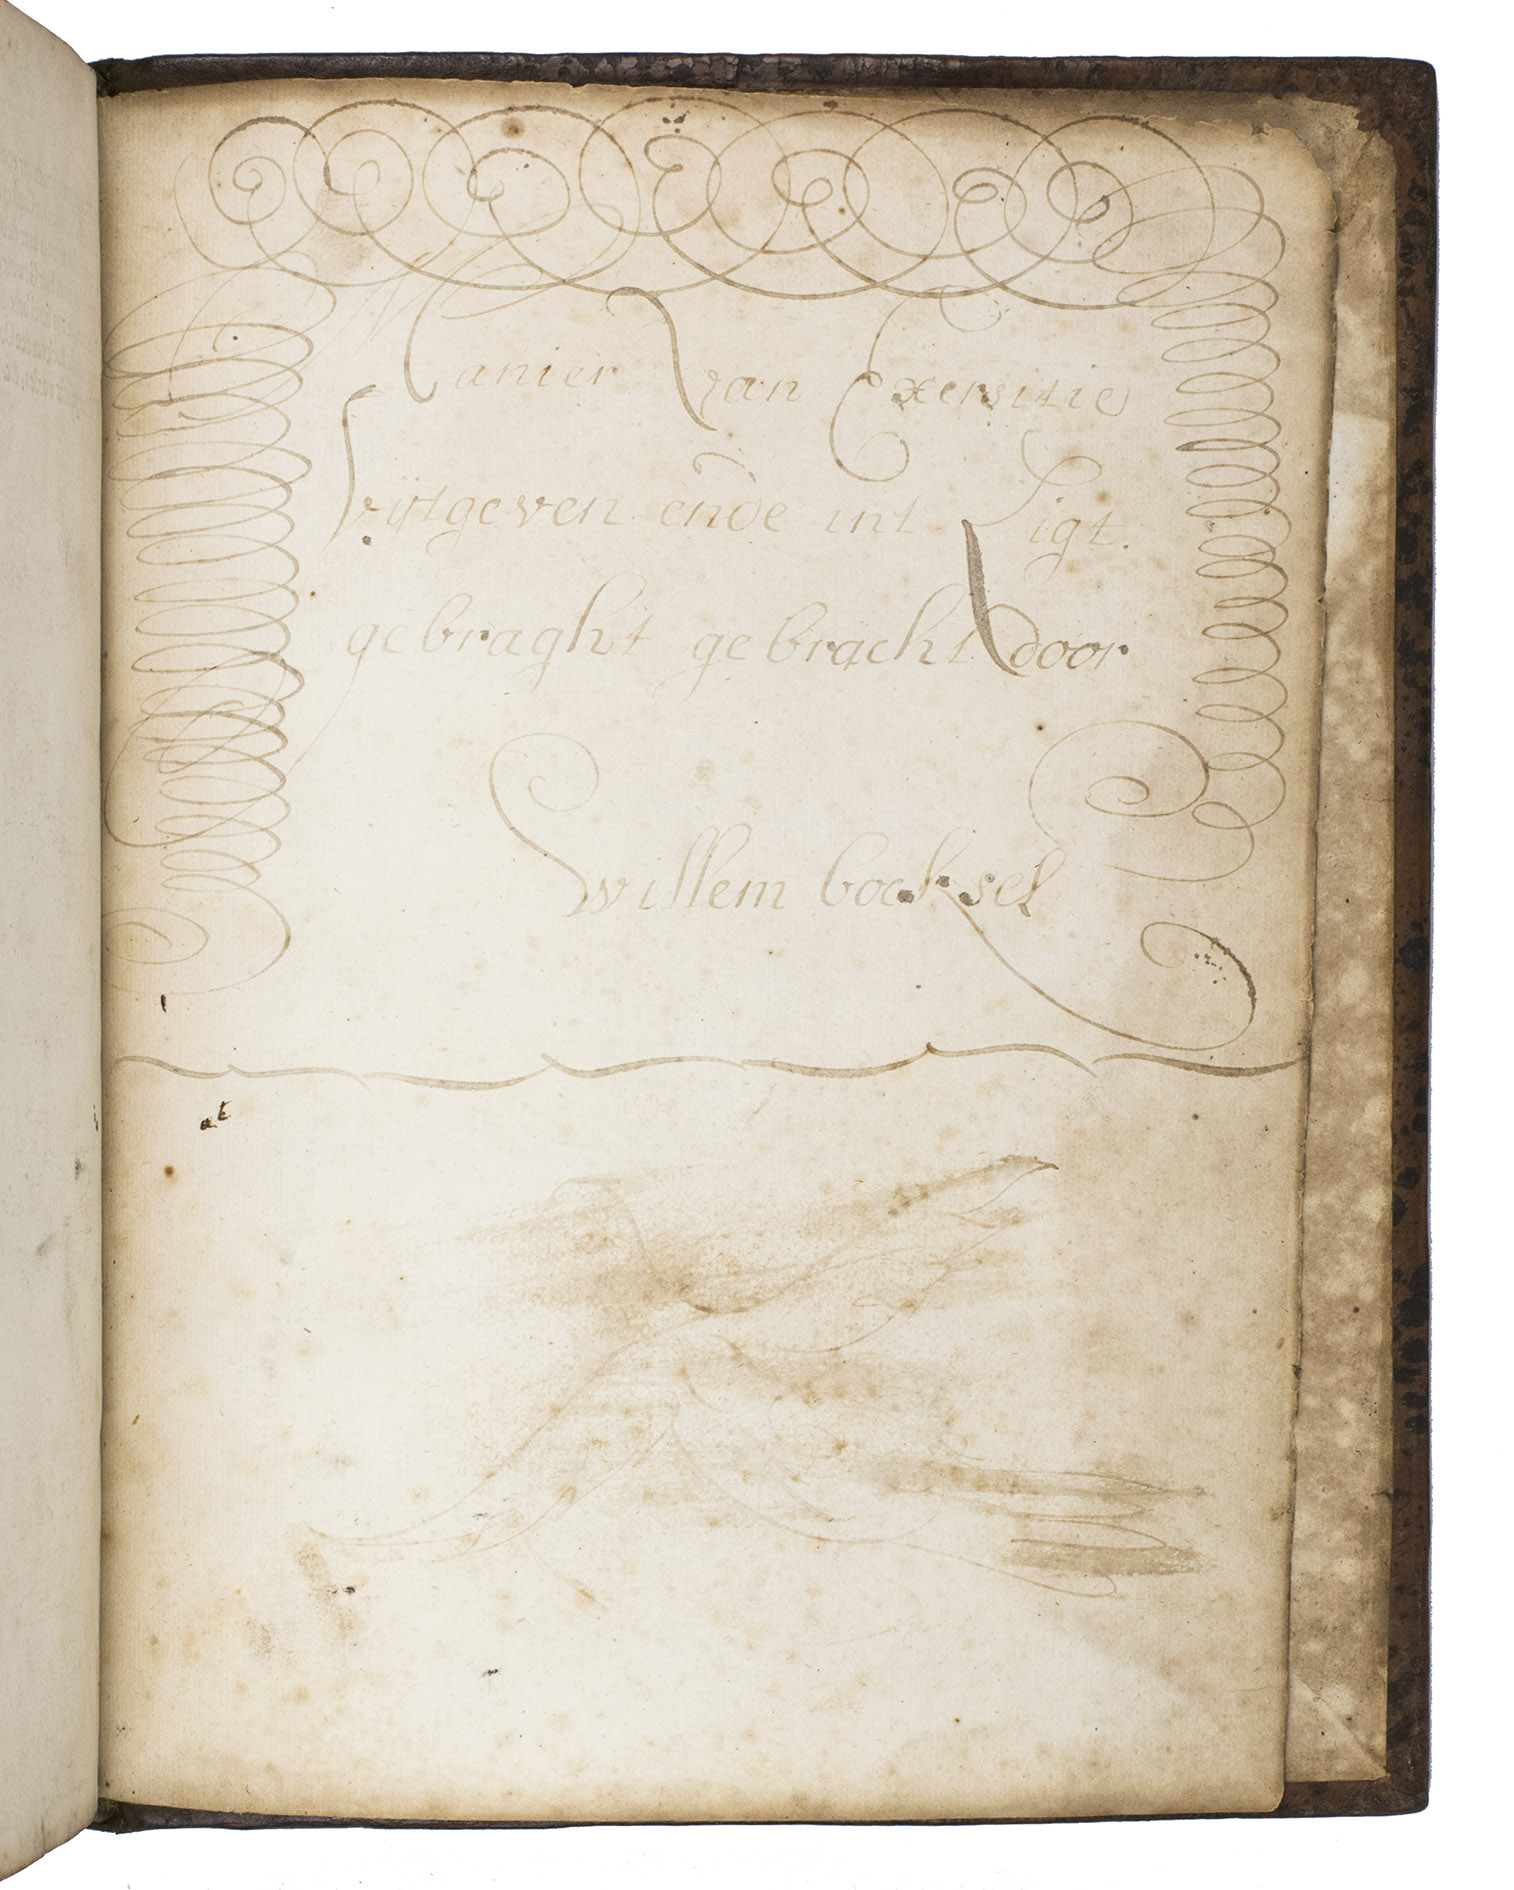 Manier Van Exersitie
Vijtgeven ende int Ligt
gebraght gebracht door
Willem boeksel
at